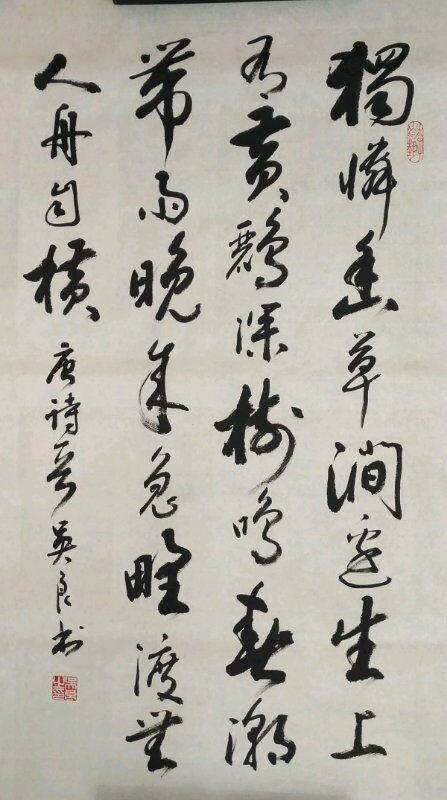 獨憐幽草澗邊生上
有黃鸝深樹鳴春潮
帶雨晚來急野渡無
人舟自橫
唐詩一首 吳良書